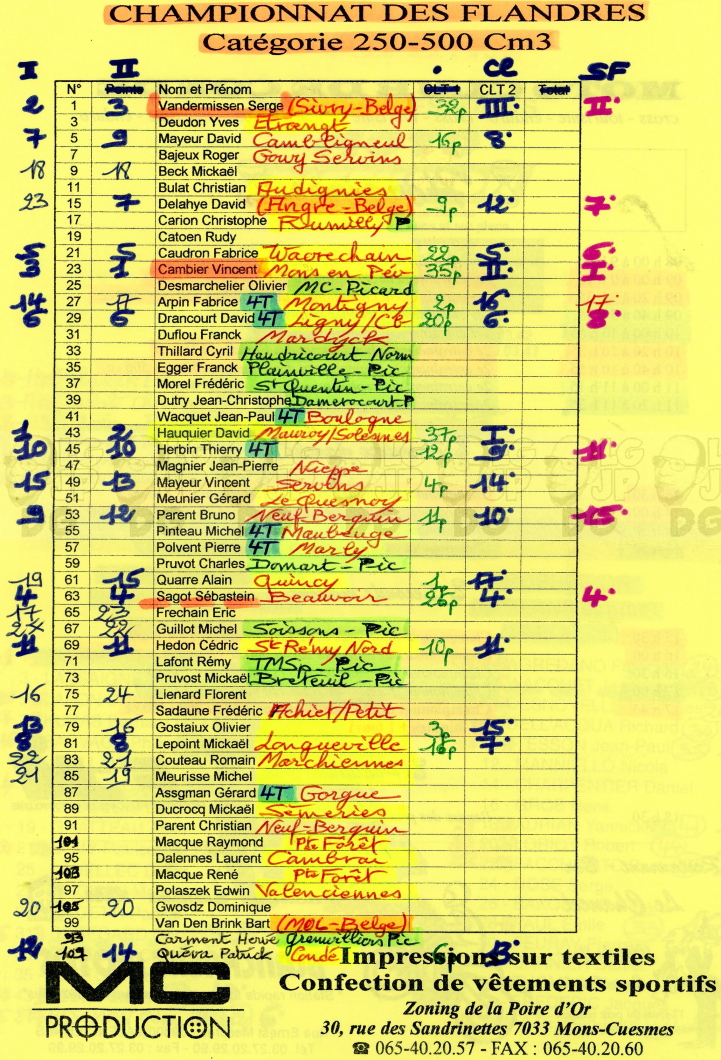 CHAMPIONNAT DES FLANDRES
Catégorie 250-500 Cm3
I II • Cl SF
N° Points Nom et Prénom CLT 1 CLT 2 Total
2 1 3 Vandermissen Serge (Sivry-Belge) 32p III. II.
3 Deudon Yves Etroengt
7 5 9 Mayeur David Cambligneul 16p 8.
7 Bajeux Roger Gouy Servins
18 9 18 Beck Mickaël
11 Bulat Christian Audignies
23 15 7 Delahye David (Angre-Belge) 9p 12. 7.
17 Carion Christophe Rumilly P
19 Catoen Rudy
5 21 5 Caudron Fabrice Wavrechain 22p 5. 6.
3 23 1 Cambier Vincent Mons en Pév 35p II. I.
25 Desmarchelier Olivier MC-Picard
14 27 17 Arpin Fabrice 4T Montigny 2p 16. 17
6 29 6 Drancourt David 4T Ligny/Cb 20p 6. 8
31 Duflou Franck Mardyck
33 Thillard Cyril Haudricourt Norm
35 Egger Franck Plainville-Pic
37 Morel Frédéric St Quentin-Pic
39 Dutry Jean-Christophe Dametocourt-P
41 Wacquet Jean-Paul 4T Boulogne
1 43 2 Hauquier David Mauroy/Solesmes 37p I.
10 45 10 Herbin Thierry 4T 12p 9. 11.
47 Magnier Jean-Pierre Nieppe
15 49 13 Mayeur Vincent Servins 4p 14.
51 Meunier Gérard Le Quesnoy
9 53 12 Parent Bruno Neuf-Berquin 11p 10. 15.
55 Pinteau Michel 4T Maubeuge
57 Polvent Pierre 4T Marly
59 Pruvot Charles Domart-Pic
19 61 15 Quarre Alain Quincy 1p 17.
4 63 4 Sagot Sébastein Beauvoir 26p 4. 4.
17 65 23 Frechain Eric
24 67 22 Guillot Michel Soissons-Pic
11 69 11 Hedon Cédric St Rémy Nord 10p 11.
71 Lafont Rémy TMSp-Pic
73 Pruvost Mickaël Breteuil-Pic
16 75 24 Lienard Florent
77 Sadaune Frédéric Achiet/Petit
13 79 16 Gostaiux Olivier 3p 15.
8 81 8 Lepoint Mickaël Longueville 16p 7.
22 83 21 Couteau Romain Marchiennes
21 85 19 Meurisse Michel
87 Assgman Gérard 4T Gorgue
89 Ducrocq Mickaël Semeries
91 Parent Christian Neuf-Berquin
101 Macque Raymond Pte Forêt
95 Dalennes Laurent Cambrai
103 Macque René Pte Forêt
97 Polaszek Edwin Valenciennes
20 105 20 Gwosdz Dominique
99 Van Den Brink Bart (MOL-Belge)
93 Carment Hervé Grenvilliers Pic
12 107 14 Quéva Patrick Condé 6p 13.
Impressions sur textiles
Confection de vêtements sportifs
MC
PRODUCTION
Zoning de la Poire d'Or
30, rue des Sandrinettes 7033 Mons-Cuesmes
☎ 065-40.20.57 - FAX : 065-40.20.60